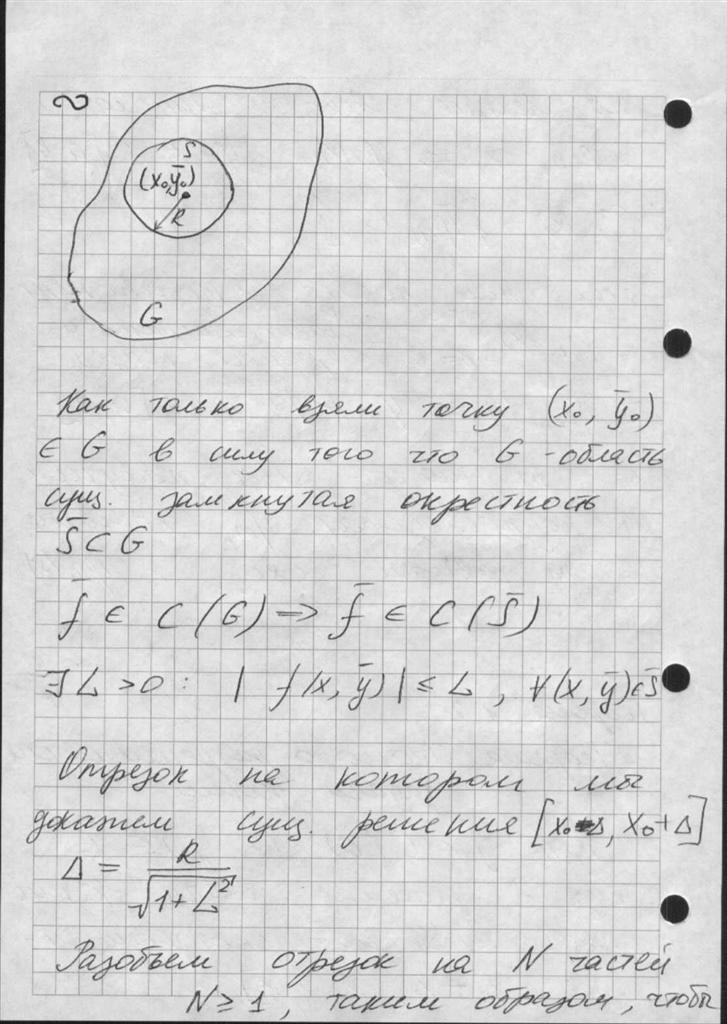 2
S
(x₀, ȳ₀)
R
G
Как только взяли точку (x₀, ȳ₀)
∈ G в силу того что G - область
сущ. замкнутая окрестность
S̄ ⊂ G
f̄ ∈ C(G) => f̄ ∈ C(S̄)
∃ L > 0 : | f(x, ȳ) | ≤ L , ∀(x, ȳ) ∈ S̄
Отрезок на котором мы
докажем сущ. решения [x₀-Δ, x₀+Δ]
Δ = R / √(1 + L²)
Разобъем отрезок на N частей
N ≥ 1, таким образом, чтобы